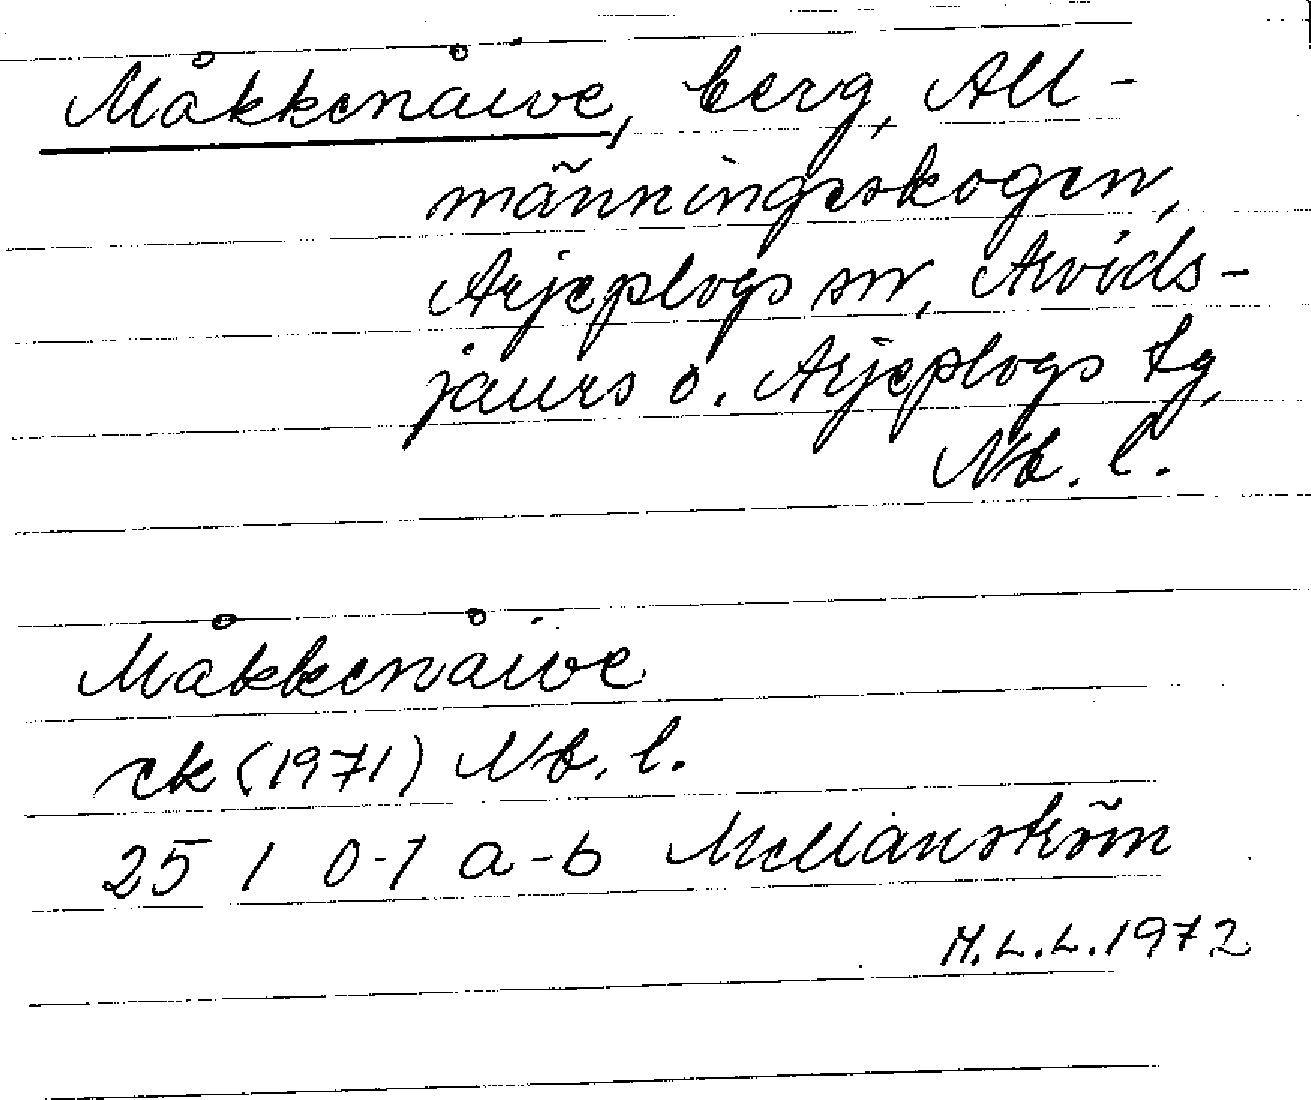 Måkkenåive, berg, All-
männingsskogen,
Arjeplogs sn, Arvids-
jaurs o. Arjeplogs tg,
Nb. l.
Måkkenåive
ek (1971) Nb. l.
25 I 0-1 a-b Mellanström
M.L.L. 1972